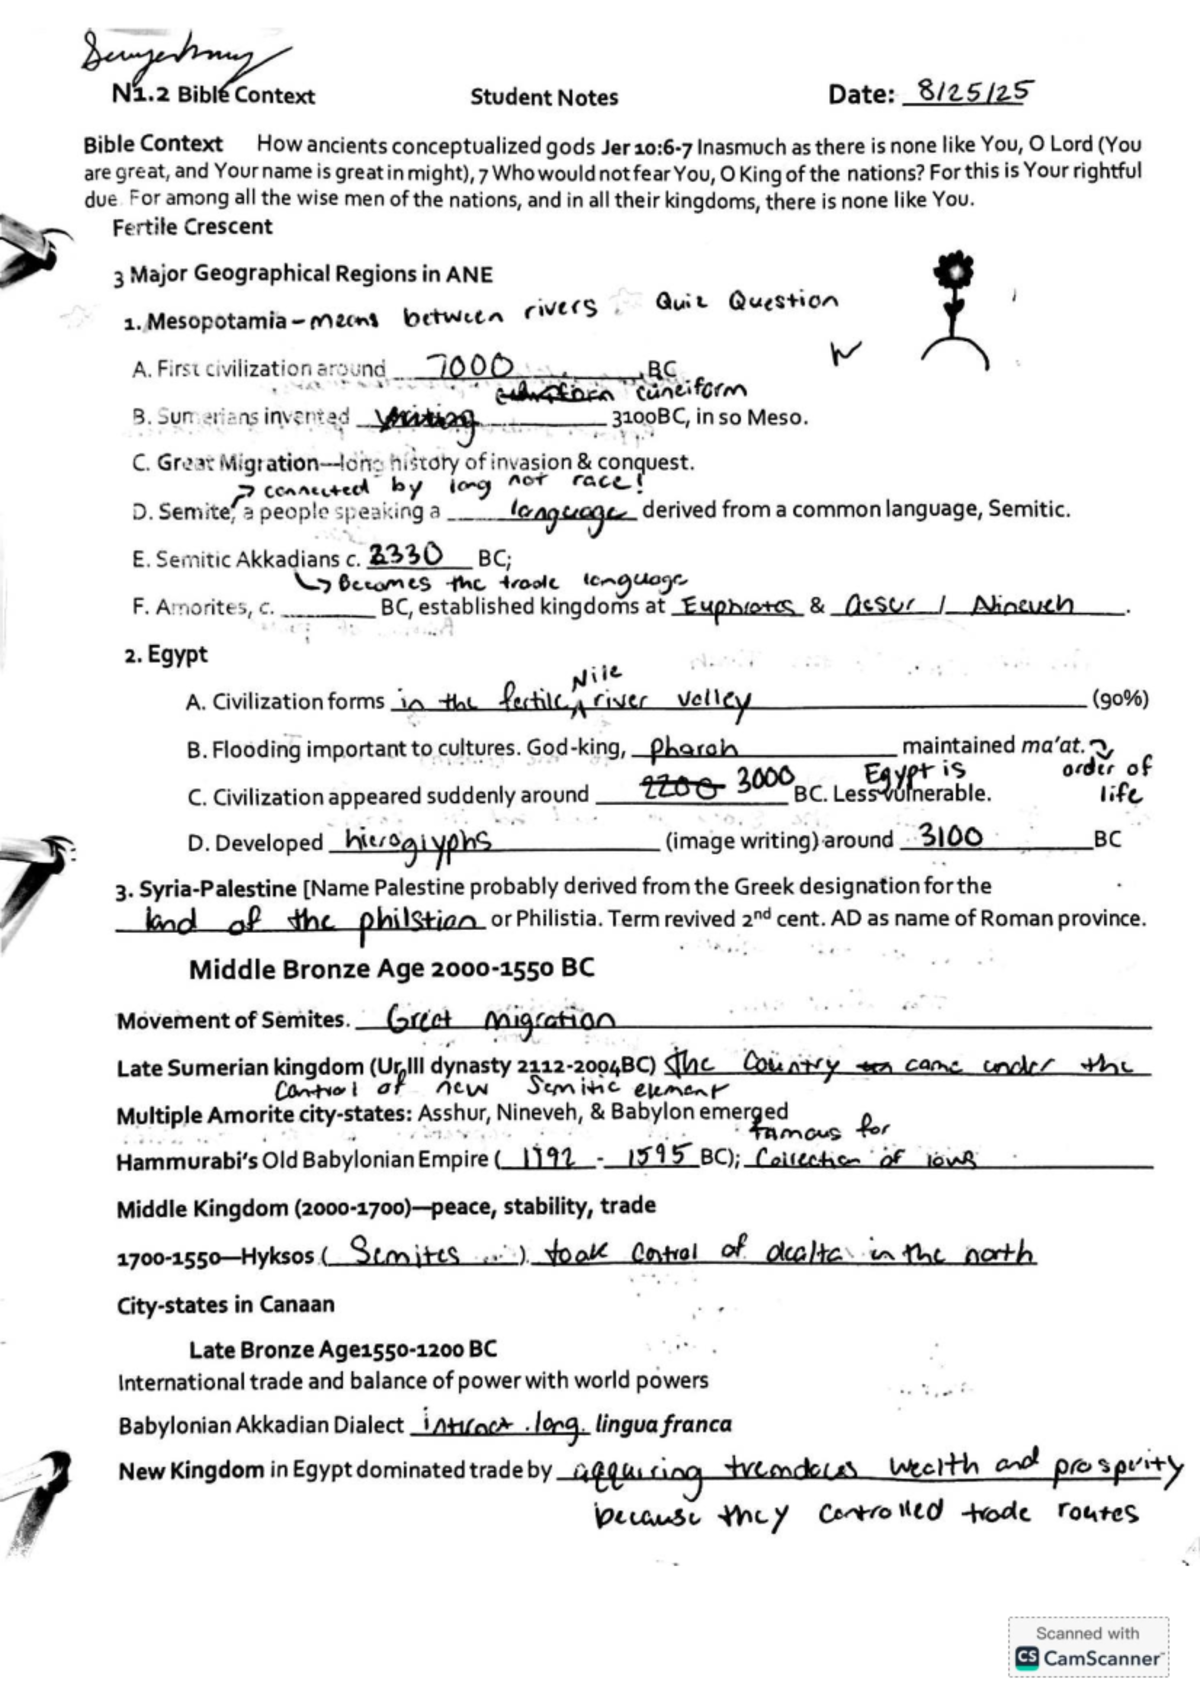 N1.2 Bible Context Student Notes Date: 8/25/25
Bible Context How ancients conceptualized gods Jer 10:6-7 Inasmuch as there is none like You, O Lord (You
are great, and Your name is great in might), 7 Who would not fear You, O King of the nations? For this is Your rightful
due. For among all the wise men of the nations, and in all their kingdoms, there is none like You.
Fertile Crescent
3 Major Geographical Regions in ANE
1. Mesopotamia – means between rivers ☆ Quiz Question
A. First civilization around 7000 BC
cuneiform
B. Sumerians invented writing 3100BC, in so Meso.
C. Great Migration—long history of invasion & conquest.
→ connected by lang not race!
D. Semite, a people speaking a language derived from a common language, Semitic.
E. Semitic Akkadians c. 2330 BC;
↳ Becomes the trade language
F. Amorites, c. ____ BC, established kingdoms at Euphrates & Assur / Nineveh.
2. Egypt
Nile
A. Civilization forms in the fertile ^ river valley (90%)
B. Flooding important to cultures. God-king, Pharah maintained ma'at.
order of life
Egypt is
C. Civilization appeared suddenly around 2200 3000 BC. Less vulnerable.
D. Developed hieroglyphs (image writing) around 3100 BC
3. Syria-Palestine [Name Palestine probably derived from the Greek designation for the
land of the philstian or Philistia. Term revived 2nd cent. AD as name of Roman province.
Middle Bronze Age 2000-1550 BC
Movement of Semites. Great migration
Late Sumerian kingdom (Ur III dynasty 2112-2004BC) The Country came under the
control of new Semitic element
Multiple Amorite city-states: Asshur, Nineveh, & Babylon emerged
famous for
Hammurabi's Old Babylonian Empire ( 1792 - 1595 BC); Collection of laws
Middle Kingdom (2000-1700)—peace, stability, trade
1700-1550—Hyksos ( Semites ) took control of dealta in the north
City-states in Canaan
Late Bronze Age1550-1200 BC
International trade and balance of power with world powers
Babylonian Akkadian Dialect interact. lang. lingua franca
New Kingdom in Egypt dominated trade by aqquiring tremdoues wealth and prosperity
because they controlled trade routes
Scanned with
CS CamScanner